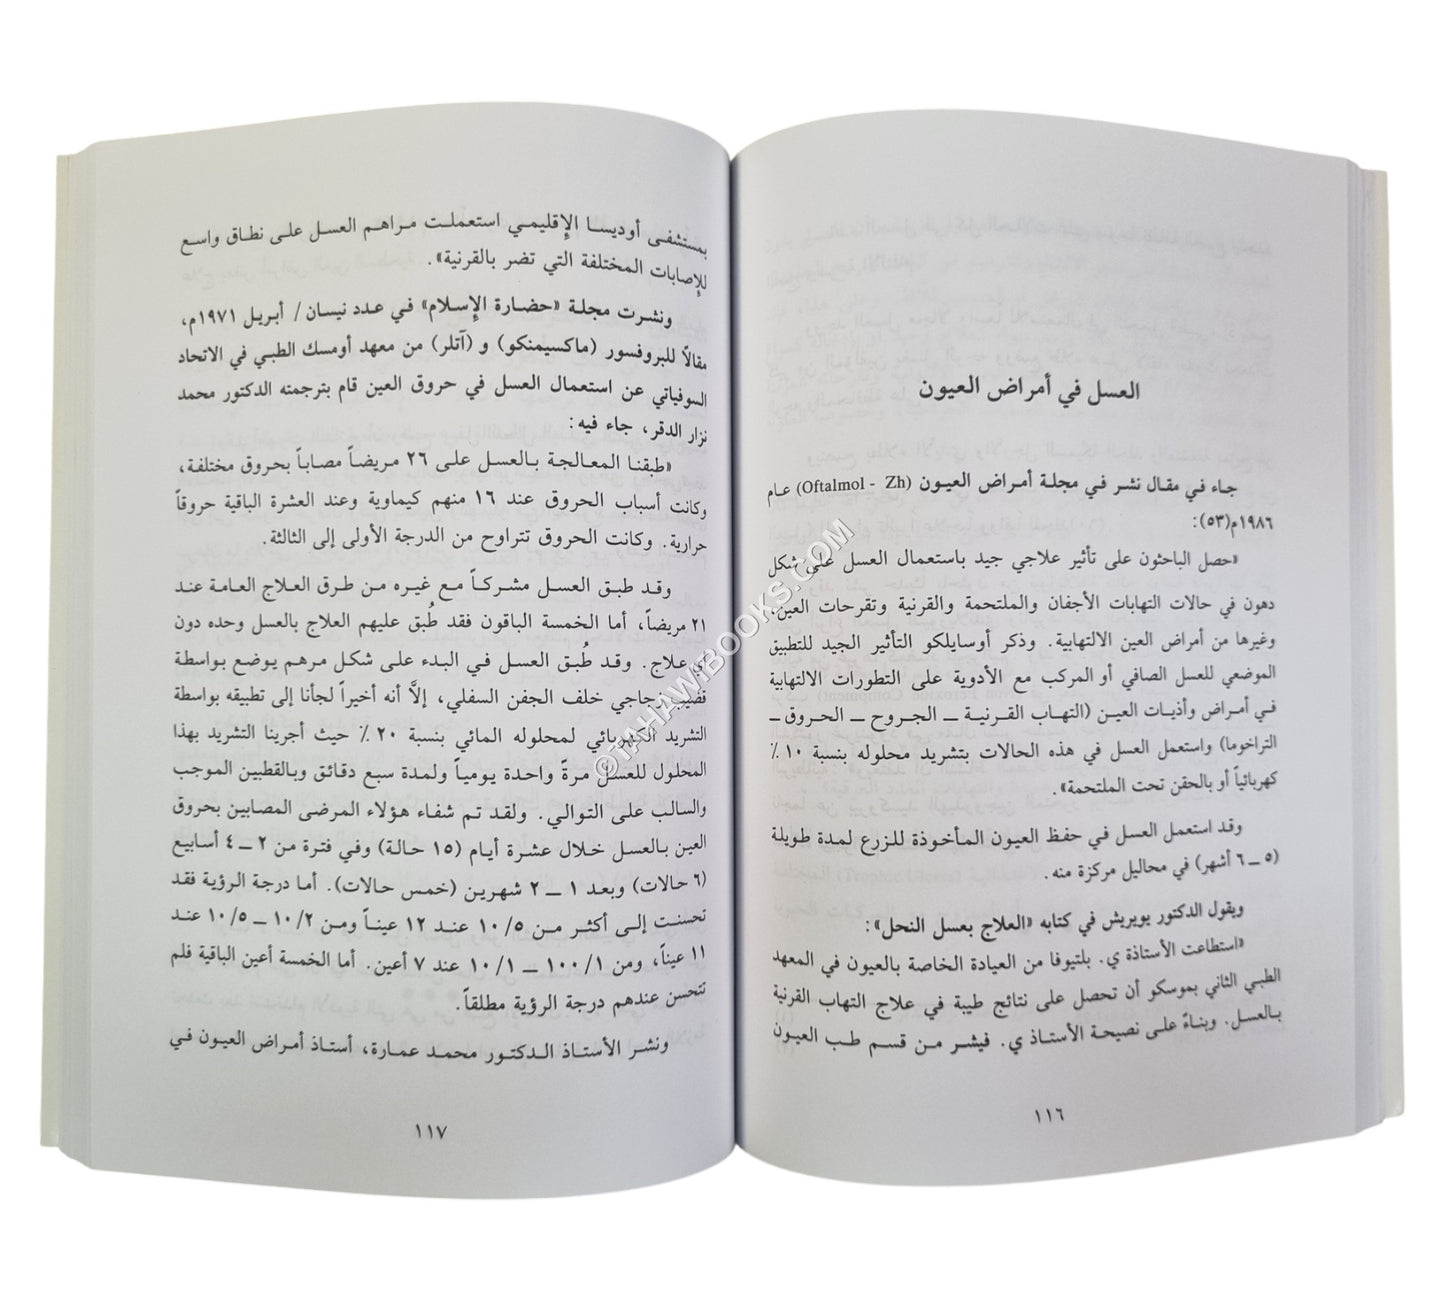 العسل في أمراض العيون
جاء في مقال نشر في مجلة أمراض العيون (Oftalmol - Zh) عام
١٩٨٦م(٥٣):
«حصل الباحثون على تأثير علاجي جيد باستعمال العسل على شكل
دهون في حالات التهابات الأجفان والملتحمة والقرنية وتقرحات العين،
وغيرها من أمراض العين الالتهابية. وذكر أوسايلكو التأثير الجيد للتطبيق
الموضعي للعسل الصافي أو المركب مع الأدوية على التطورات الالتهابية
في أمراض وأذيات العين (التهاب القرنية ــ الجروح ــ الحروق ــ
التراخوما) واستعمل العسل في هذه الحالات بتشريد محلوله بنسبة ١٠٪
كهربائياً أو بالحقن تحت الملتحمة».
وقد استعمل العسل في حفظ العيون المأخوذة للزرع لمدة طويلة
(٥ ــ ٦ أشهر) في محاليل مركزة منه.
ويقول الدكتور يويريش في كتابه «العلاج بعسل النحل»:
«استطاعت الأستاذة ي. بلتيوفا من العيادة الخاصة بالعيون في المعهد
الطبي الثاني بموسكو أن تحصل على نتائج طيبة في علاج التهاب القرنية
بالعسل. وبناءً على نصيحة الأستاذ ي. فيشر من قسم طب العيون
١١٦
بمستشفى أوديسا الإقليمي استعملت مراهم العسل على نطاق واسع
للإصابات المختلفة التي تضر بالقرنية».
ونشرت مجلة «حضارة الإسلام» في عدد نيسان / أبريل ١٩٧١م،
مقالاً للبروفسور (ماكسيمنكو) و (آتلر) من معهد أومسك الطبي في الاتحاد
السوفياتي عن استعمال العسل في حروق العين قام بترجمته الدكتور محمد
نزار الدقر، جاء فيه:
«طبقنا المعالجة بالعسل على ٢٦ مريضاً مصاباً بحروق مختلفة،
وكانت أسباب الحروق عند ١٦ منهم كيماوية وعند العشرة الباقية حروقاً
حرارية. وكانت الحروق تتراوح من الدرجة الأولى إلى الثالثة.
وقد طبق العسل مشركاً مع غيره من طرق العلاج العامة عند
٢١ مريضاً، أما الخمسة الباقون فقد طُبق عليهم العلاج بالعسل وحده دون
أي علاج. وقد طُبق العسل في البدء على شكل مرهم يوضع بواسطة
قضيب زجاجي خلف الجفن السفلي، إلاَّ أنه أخيراً لجأنا إلى تطبيقه بواسطة
التشريد الكهربائي لمحلوله المائي بنسبة ٢٠٪ حيث أجرينا التشريد بهذا
المحلول للعسل مرةً واحدة يومياً ولمدة سبع دقائق وبالقطبين الموجب
والسالب على التوالي. ولقد تم شفاء هؤلاء المرضى المصابين بحروق
العين بالعسل خلال عشرة أيام (١٥ حالة) وفي فترة من ٢ ــ ٤ أسابيع
(٦ حالات) وبعد ١ ــ ٢ شهرين (خمس حالات). أما درجة الرؤية فقد
تحسنت إلى أكثر من ١٠/٥ عند ١٢ عيناً ومن ١٠/٢ ــ ١٠/٥ عند
١١ عيناً، ومن ١٠٠/١ ــ ١٠/١ عند ٧ أعين. أما الخمسة أعين الباقية فلم
تتحسن عندهم درجة الرؤية مطلقاً.
ونشر الأستاذ الدكتور محمد عمارة، أستاذ أمراض العيون في
١١٧
©TAHAWIBOOKS.COM